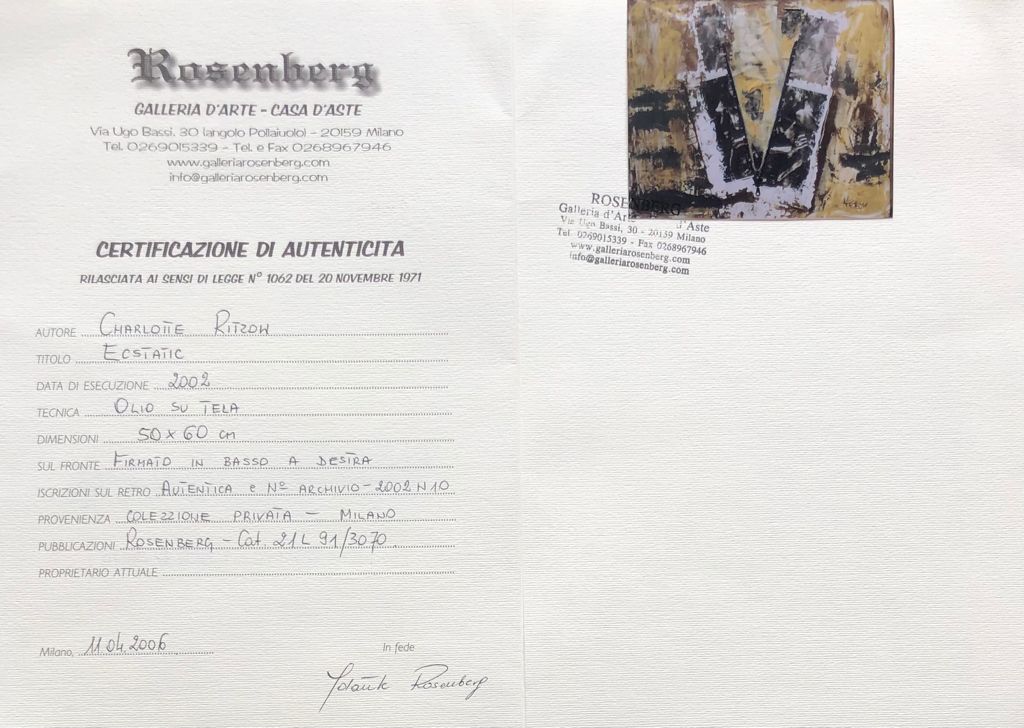 Rosenberg
GALLERIA D'ARTE - CASA D'ASTE
Via Ugo Bassi, 30 (angolo Pollaiuolo) - 20159 Milano
Tel. 0269015339 - Tel. e Fax 0268967946
www.galleriarosenberg.com
info@galleriarosenberg.com
CERTIFICAZIONE DI AUTENTICITA
RILASCIATA AI SENSI DI LEGGE N° 1062 DEL 20 NOVEMBRE 1971
AUTORE CHARLOTTE RITZOW
TITOLO ECSTATIC
DATA DI ESECUZIONE 2002
TECNICA OLIO SU TELA
DIMENSIONI 50 x 60 cm
SUL FRONTE FIRMATO IN BASSO A DESTRA
ISCRIZIONI SUL RETRO AUTENTICA e N° ARCHIVIO - 2002 N 10
PROVENIENZA COLEZZIONE PRIVATA - MILANO
PUBBLICAZIONI ROSENBERG - Cat. 21 L 91/3070
PROPRIETARIO ATTUALE
Milano, 11.04.2006
In fede
Rosenberg
ROSENBERG
Galleria d'Arte d'Aste
Via Ugo Bassi, 30 - 20159 Milano
Tel. 0269015339 - Fax 0268967946
www.galleriarosenberg.com
info@galleriarosenberg.com